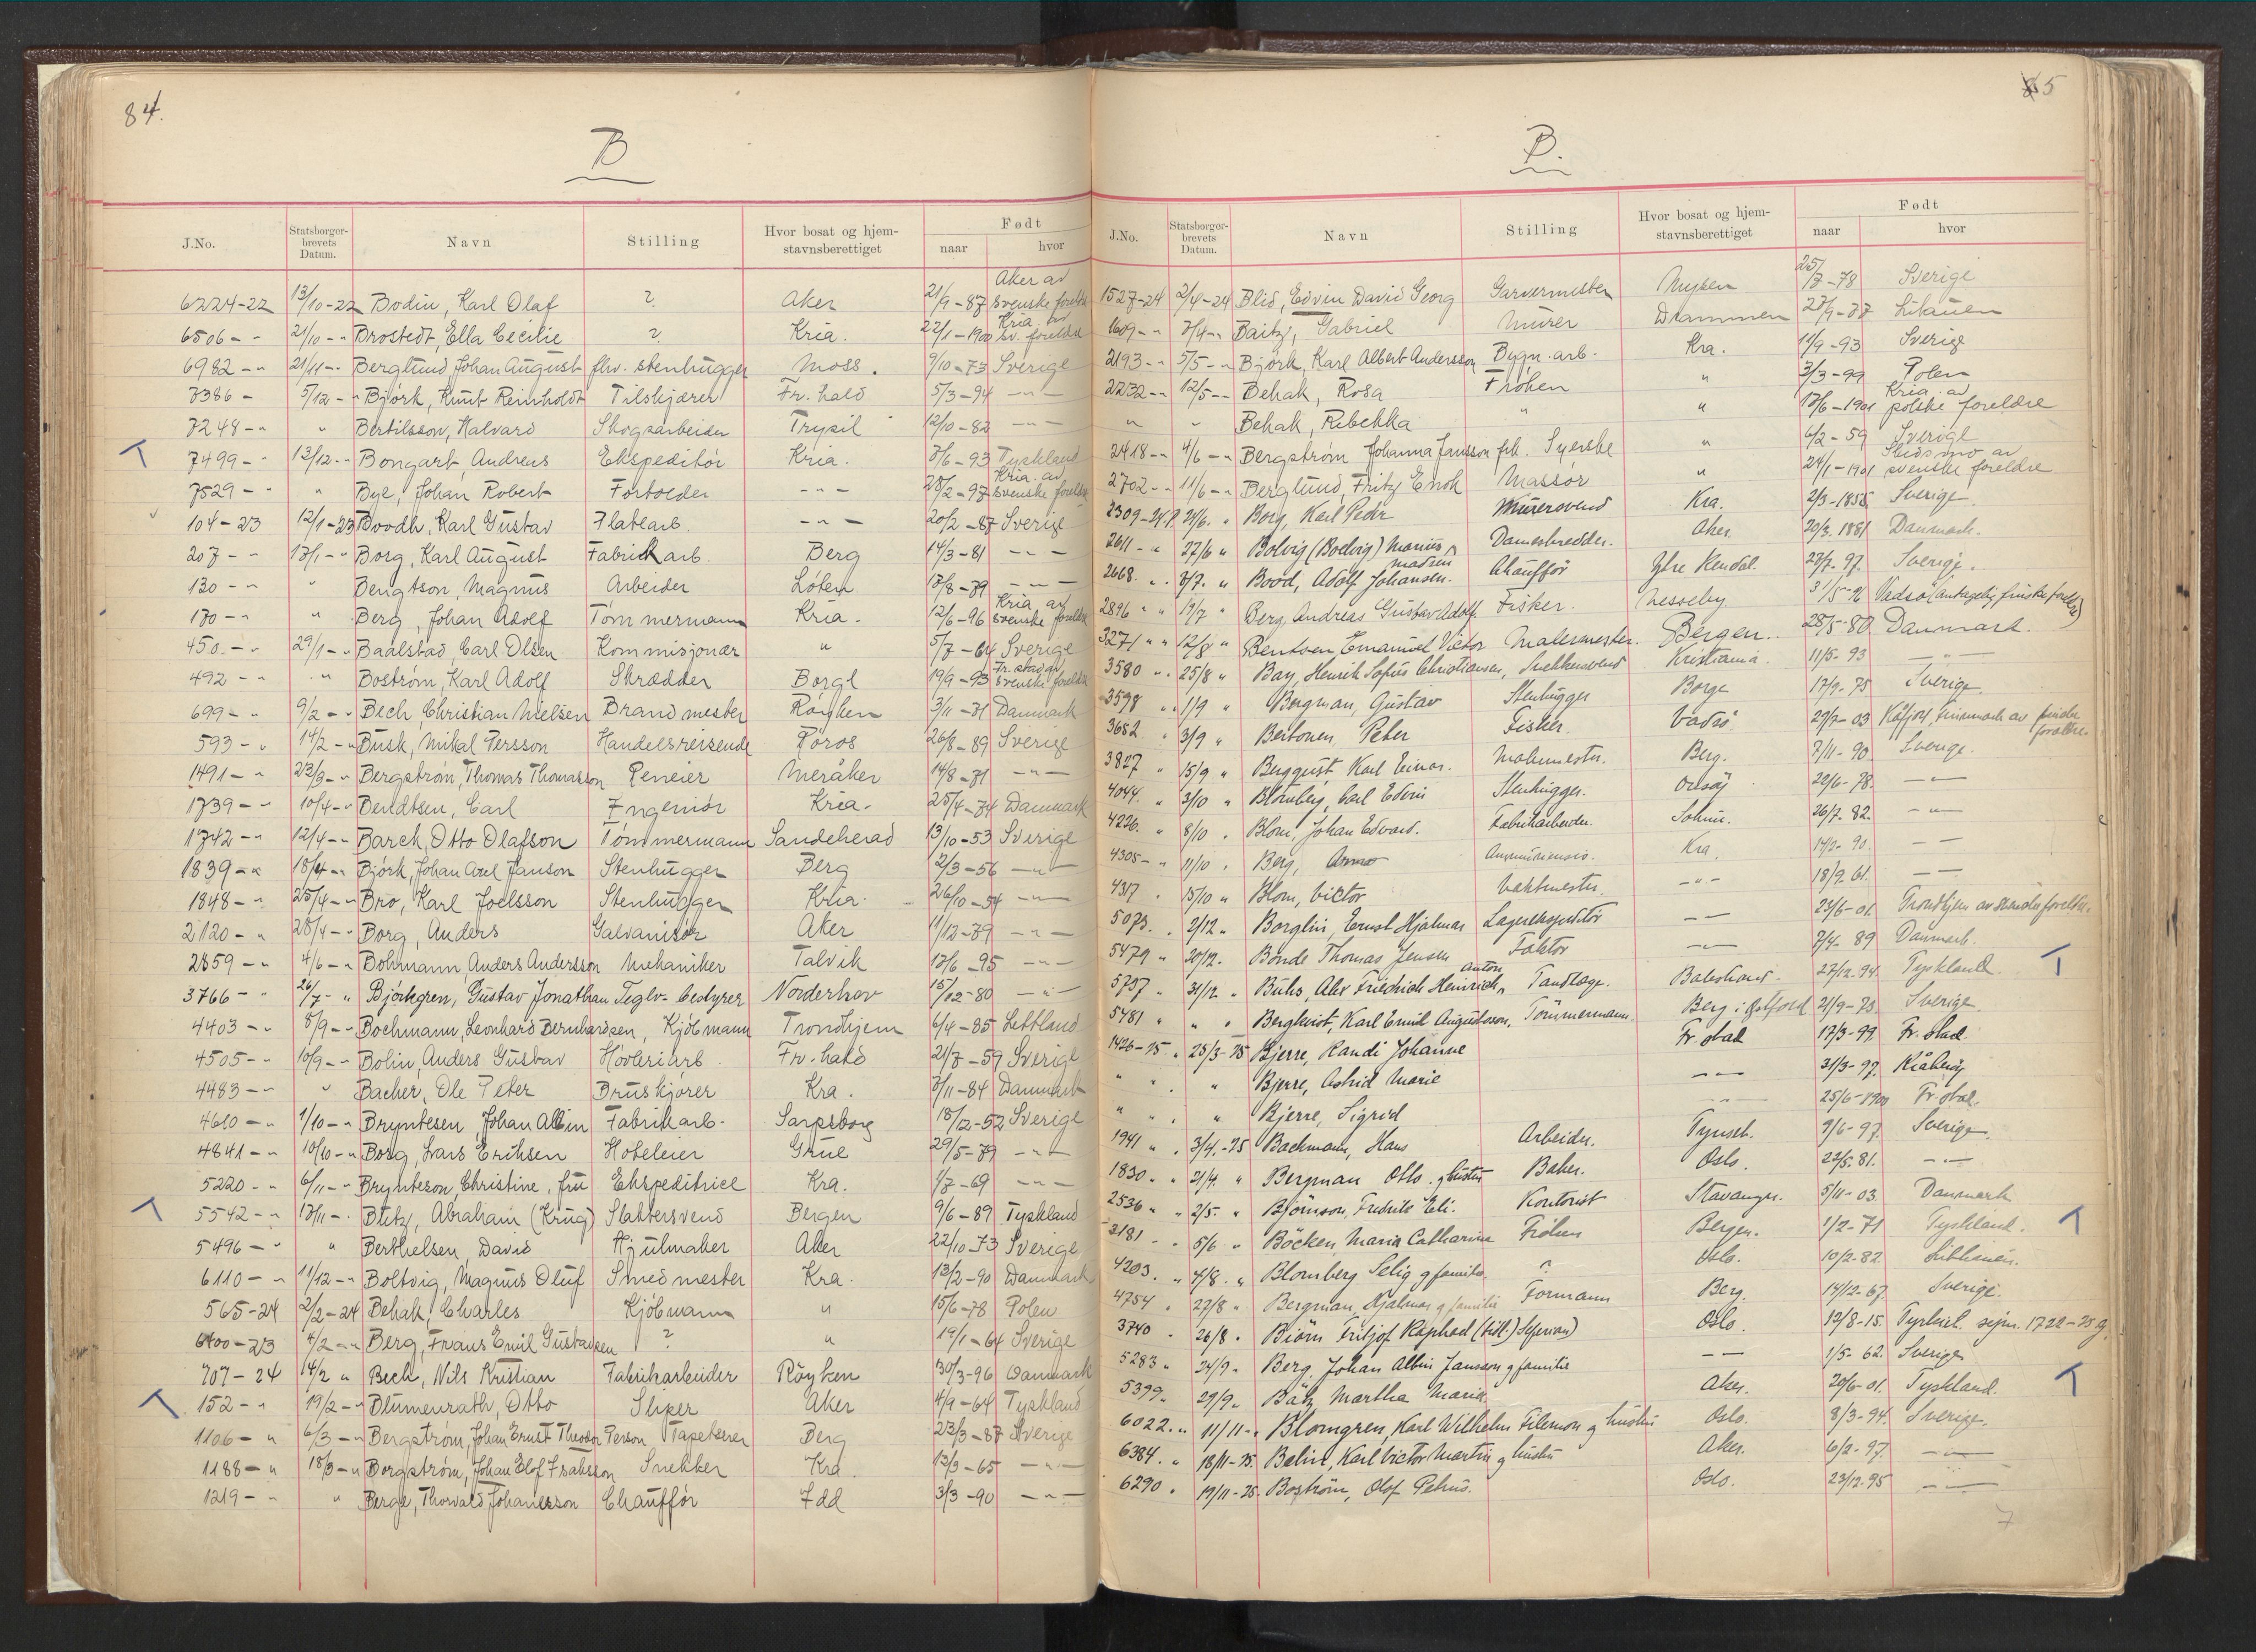 84.
B
J.No. Statsborgerbrevets Datum. Navn Stilling Hvor bosat og hjemstavnsberettiget Født naar hvor
6224-22 13/10-22 Bodin, Karl Olaf ? Aker 21/9-87 Aker av svenske foreldre
6506 - - 21/10 - " Brostedt, Ella Cecilie ? Kria. 22/1-1900 Kria. av sv. foreldre
6982 - " 21/11 - " Berglund, Johan August fhv. stenhugger Moss. 9/10-73 Sverige
7386 - 5/12 - " Björk, Knut Reinholdt Tilskjærer Fr.hald 5/3-94 - " -
7248 - " " Bertilsson, Halvard Skogsarbeider Trysil 12/10-82 - " -
T 7499 - " 13/12 - " Bongart, Andreas Ekspeditör Kria. 7/6-93 Tyskland
7529 - - " Bye, Johan Robert Fortolder - " - 28/2-97 Kria. av svenske foreldre
104-23 12/1-23 Boodh, Karl Gustav Platearb. - " - 20/2-87 Sverige
207 - - 17/1 - " Borg, Karl August Fabrikarb. Berg 14/3-81 - " -
130 - " " Bengtson, Magnus Arbeider Löten 17/8-79 - " -
170 - " " Berg, Johan Adolf Tömmermann Kria. 12/6-96 Kria av svenske foreldre
450. - " 29/1 - " Baalstad, Carl Olsen Kommisjonær " 5/7-64 Sverige
492 - " " Boström, Karl Adolf Skrædder Borge 19/9-93 Fr.stad av svenske foreldre
699 - " 9/2 - " Bech Christian Nielsen Brandmester Röyken 3/11-71 Danmark
593 - " 14/2 - " Busk, Mikal Persson Handelsreisende Röros 26/8-89 Sverige
1491 - " 23/3 - " Bergström, Thomas Thomasson Peneier Meråker 14/8-71 - " -
1739 - - 10/4 - " Bendtsen, Carl Ingeniör Kria. 25/4-74 Danmark
1742 - " 12/4 - " Barck, Otto Olafson Tömmermann Sandeherad 13/10-53 Sverige
1839 - " 18/4 - " Björk, Johan Axel Janson Stenhugger Berg 2/3-56 - " -
1848 - " 25/4 - " Bro, Karl Joelsson Stenhugger Kria. 26/10-54 - " -
2120 - " 28/4 - " Borg, Anders Galvanisör Aker 11/12-79 - " -
2859 - " 4/6 - " Bohmann Anders Andersson Mekaniker Talvik 17/6-95 - " -
3766 - " 26/7 - " Björkgren, Gustav Jonathan Teglv. bestyrer Norderhov 15/12-80 - " -
4403 - " 5/9 - " Bochmann, Leonhard Bernhardsen, Kjöbmann Trondhjem 6/4-85 Lettland
4505 - " 10/9 - " Bolin, Anders Gustav Hövleriarb. Fr.hald 21/7-59 Sverige
4483 - " " Bacher, Ole Peter Bruskjörer Kra. 7/11-84 Danmark
4610 - " 1/10 - " Bryntesen, Johan Albin Fabrikarb. Sarpsborg 18/12-52 Sverige
4841 - " 10/10 - " Borg, Lars Eriksen Hoteleier Grue 29/5-79 - " -
5220 - " 6/11 - " Brynteson, Christine, fru Ekspeditrice Kra. 1/7-69 - " -
T 5542 - " 13/11 - . Blitz, Abraham (Krug) Slaktersvend Bergen 9/6-89 Tyskland
5496 - " " Berthelsen, David Hjulmaker Aker 22/10-73 Sverige
6110 - " 11/12 - " Boltvig, Magnus Oluf Smedmester Kra. 13/2-90 Danmark
565-24 2/2-24 Behak, Charles Kjöbmann " 15/6-78 Polen
6400-23 4/2 - " Berg, Frans Emil Gustavsen ? " 19/1-64 Sverige
707-24 14/2 " Bech, Nils Kristian Fabrikarbeider Röyken 30/3-96 Danmark
T 152 - " 19/2 - " Blumenrath, Otto Sliper Aker 4/9-64 Tyskland
1106 - " 6/3 - " Bergström, Johan Ernst Theodor Person Tapetserer Berg 23/3-87 Sverige
1188 - " 18/3 - " Borgström, Johan Elof Isaksson Snekker Kra. 13/3-65 - " -
1219 - - " Berge, Thorvald Johannesson Chaufför Idd 3/3-90 - " -
85
B.
J.No. Statsborgerbrevets Datum. Navn Stilling Hvor bosat og hjemstavnsberettiget Født naar hvor
1527-24 2/4-24 Blid, Edvin David Georg Garvermester Mysen 25/7-78 Sverige
1609 - " 7/4 - " Baitz, Gabriel Murer Drammen 27/9-87 Litauen
2193 - " 5/5 - " Björk, Karl Albert Andersson Bygn.arb. Kra. 11/9-93 Sverige
2232 - " 12/5 - " Behak, Rosa Fröken " 3/3-99 Polen
" " Behak, Rebekka " " 17/6-1901 Kria. av polske foreldre
2418 - " 4/6 - " Bergström Johanna Jansson frk. Syerske " 6/2-59 Sverige
2702 - " 11/6 - " Berglund, Fritz Enok Massör " 24/1-1901 Skedsmo av svenske foreldre
2309-24. 24/6. " Borg, Karl Peder Murersvend Kra. 2/3-1855 Sverige
2611 - " 27/6 " Bolvig (Boelvig) Marius Madsen Dameskredder. Aker. 20/3.1881 Danmark.
2668. " . 7/7. " Bood, Adolf Johansen. Chaufför Ytre Rendal. 23/7-97. Sverige.
2896 " " 19/7 " Berg, Andreas Gustav Adolf. Fisker. Nesseby 31/5-96 Vadsö (antagelig finske foreldre)
3271 " " 12/8 " Bentsen Emanuel Victor Malermester. Bergen.. 28/5-80 Danmark.
3580 " . 25/8 " Bay, Henrik Sofus Christiansen, Snekkersvend Kristiania. 11/5-93 - " -
3598 " . 1/9 " Bergman, Gustav Stenhugger Borge 17/9-75 Sverige.
3652 " 3/9 " Beitonen, Peter Fisker. Vadsö 29/7-03 Kåfjord, Finnmark av finske foreldre.
3827 " 15/9 " Bergquist, Karl Einar. Malermester. Berg. 7/11-90. Sverige.
4044. " 3/10 " Blomberg, Carl Edvin Stenhugger. Onsöy 22/6-78. - " -
4226. " 8/10 . Blom, Johan Edvard. Fabrikarbeider. Solum. 26/7.82. - " -
4305 - " 11/10 . Berg, Kra. 14/2-90. - -
4317 . 15/10 " Blom, Victor Vaktmester. - " - 18/9.61. - -
5073. . 2/12 " Borglin, Ernst Hjalmar Lagerekspeditör - - 23/6-01. Trondhjem av svenske foreldre.
5479 " 20/12. Bonde Thomas Jensen Faktor - " - 7/4-89 Danmark.
5797 " 31/12 " Buhs, Alex Friedrich Heinrich Anton Tandlæge. Balestrand. 27/12.94. Tyskland. T
5481 " " " Bergkvist, Karl Emil Augustsson, Tömmermann. Berg i Østfold 21/9-73. Sverige.
1426-25. " 23/3-25 Bjerre, Randi Johanne Fr.stad 17/3-99. Fr.stad.
" " . " Bjerre, Astrid Marie - - 31/3-97. Kråkeröy
" " . " Bjerre, Sigrid - - 25/6-1900 Fr.stad.
1941 " . 3/4.-25 Bachmann, Hans Arbeider. Tynset. 9/6-97. Sverige.
1830. " . 21/4. " Bergman Otto. g hustru Baker. Oslo. 22/5.81. - " -
2536 " " 2/5. " Björnson, Fredrik Eli. Kontorist Stavanger. 5/11-03. Danmark
3181 - . 5/6 " Böcken, Maria Catharina Fröken Bergen. 1/2-71 Tyskland. T
4203. " 4/8. " Blomberg Selig g familie. ? Oslo. 10/2-82. Litthauen.
4754 . 27/8 " Bergman, Hjalmar g familie Formann Berg. 14/12-67. Sverige.
3740 . 26/8 . Biörn Fritjof Raphael (tidl.) Seferian) Oslo. 12/8-15. Tyrkiet. sejm. 1722-25 g.
5283 " 24/9 " Berg, Johan Albin Jansson g familie - - 1/5-62. Sverige
5399 " 29/9 " Bätz Martha Maria Aker. 20/6-01. Tyskland. T
6022. " . 11/11 - . Blomgren, Karl Wilhelm Filemon g hustru Oslo. 8/3-94. Sverige.
6384. " 18/11-25 Balin, Karl Victor Martin g hustru Aker. 6/2-97. - " -
6290 . 19/11-25. Boström, Olof Petrus. Oslo. 23/12-95 - " -
7